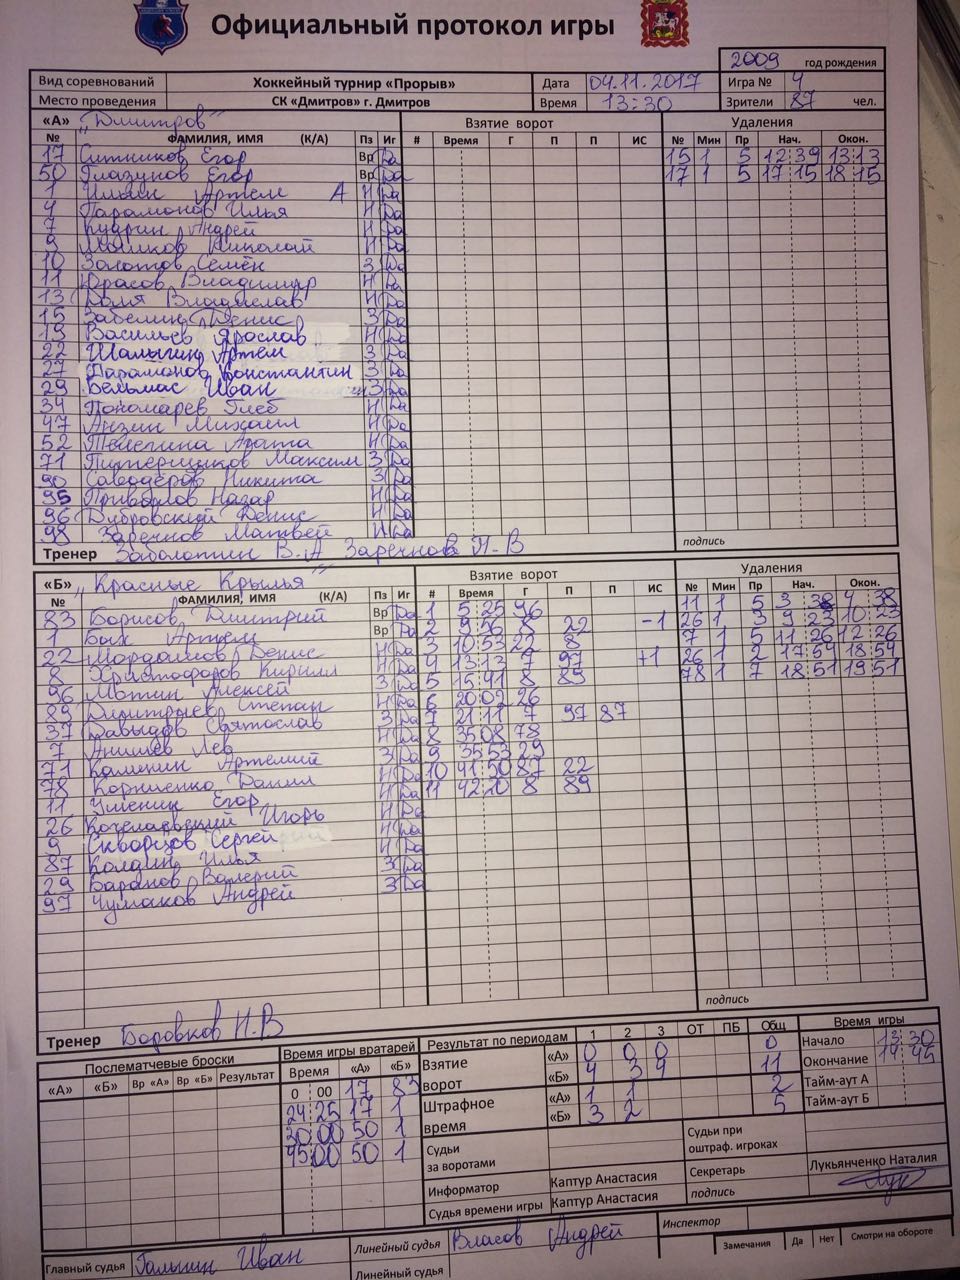 Официальный протокол игры
2009 год рождения
Вид соревнований Хоккейный турнир «Прорыв» Дата 04.11.2017 Игра № 4
Место проведения СК «Дмитров» г. Дмитров Время 13:30 Зрители 87 чел.
«А» „Дмитров" Взятие ворот Удаления
№ ФАМИЛИЯ, ИМЯ (К/А) Пз Иг # Время Г П П ИС № Мин Пр Нач. Окон.
17 Ситников Егор Вр Да 15 1 5 12 39 13 13
50 Глазунов Егор Вр Да 17 1 5 17 15 18 15
1 Ильин Артем А Н Да
4 Парамонов Илья Н Да
7 Кудрин Андрей Н Да
9 Николай Н Да
10 Золотов Семён З Да
11 Юрасов Владимир Н Да
13 Владислав Н Да
15 Забелин Денис З Да
19 Васильев Ярослав Н Да
22 Шалыгин Артем З Да
27 Парамонов Константин З Да
29 Бельмас Иван З Да
34 Пономарев Глеб Н Да
47 Анзин Михаил Н Да
52 Агата Н Да
71 Максим З Да
90 Саводёров Никита З Да
95 Назар Н Да
96 Дубровский Денис Н Да
98 Заречнов Матвей Н Да
Тренер Заболотин В.А Заречнов Н.В подпись
«Б» „Красные Крылья" Взятие ворот Удаления
№ ФАМИЛИЯ, ИМЯ (К/А) Пз Иг # Время Г П П ИС № Мин Пр Нач. Окон.
83 Борисов Дмитрий Вр Да 1 5 25 96 11 1 5 3 38 4 38
1 Бых Артем Вр Да 2 9 56 8 22 -1 26 1 3 9 23 10 23
22 Мордасов Денис Н Да 3 10 53 22 8 7 1 5 11 26 12 26
8 Христофоров Кирилл Н Да 4 13 13 7 97 +1 26 1 2 17 54 18 54
96 Мотин Алексей З Да 5 15 41 8 89 78 1 7 18 51 19 51
89 Дмитрыев Степан Н Да 6 20 02 26
37 Давыдов Святослав З Да 7 21 11 7 97 87
7 Анишев Лев Н Да 8 35 08 78
71 Каменин Артемий З Да 9 35 53 29
78 Корниенко Данил Н Да 10 41 50 87 22
11 Уменик Егор Н Да 11 42 10 8 89
26 Игорь Н Да
9 Скворцов Сергей Н Да
87 Колдин Илья Н Да
29 Баранов Валерий З Да
97 Чумаков Андрей З Да
Тренер Боровков Н.В подпись
Послематчевые броски Время игры вратарей Результат по периодам 1 2 3 ОТ ПБ Общ Время игры
«А» «Б» Вр «А» Вр «Б» Результат Время «А» «Б»
Взятие ворот «А» 0 0 0 0 Начало 13 30
«Б» 4 3 4 11 Окончание 14 45
Штрафное время «А» 1 1 2 Тайм-аут А
«Б» 3 2 5 Тайм-аут Б
0 00 17 83
24 25 17 1
20 00 50 1
45 00 50 1
Судьи за воротами Судьи при оштраф. игроках
Информатор Каптур Анастасия Секретарь Лукьянченко Наталия
Судья времени игры Каптур Анастасия подпись
Главный судья Галыгин Иван Линейный судья Власов Андрей Инспектор
Линейный судья Замечания Да Нет Смотри на обороте